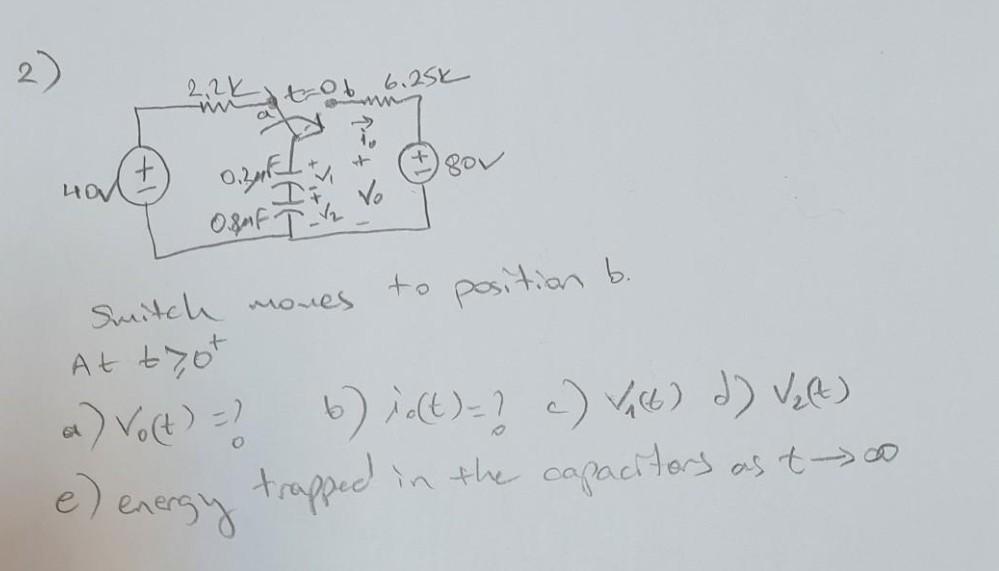 2)
2.2K t=0 b 6.25K
a
i₀
40V 0.2µF + V₁ - + V₀ - 80V
0.8µF + V₂ -
Switch moves to position b.
At t≥0⁺
a) V₀(t)=? b) i₀(t)=? c) V₁(t) d) V₂(t)
e) energy trapped in the capacitors as t→∞